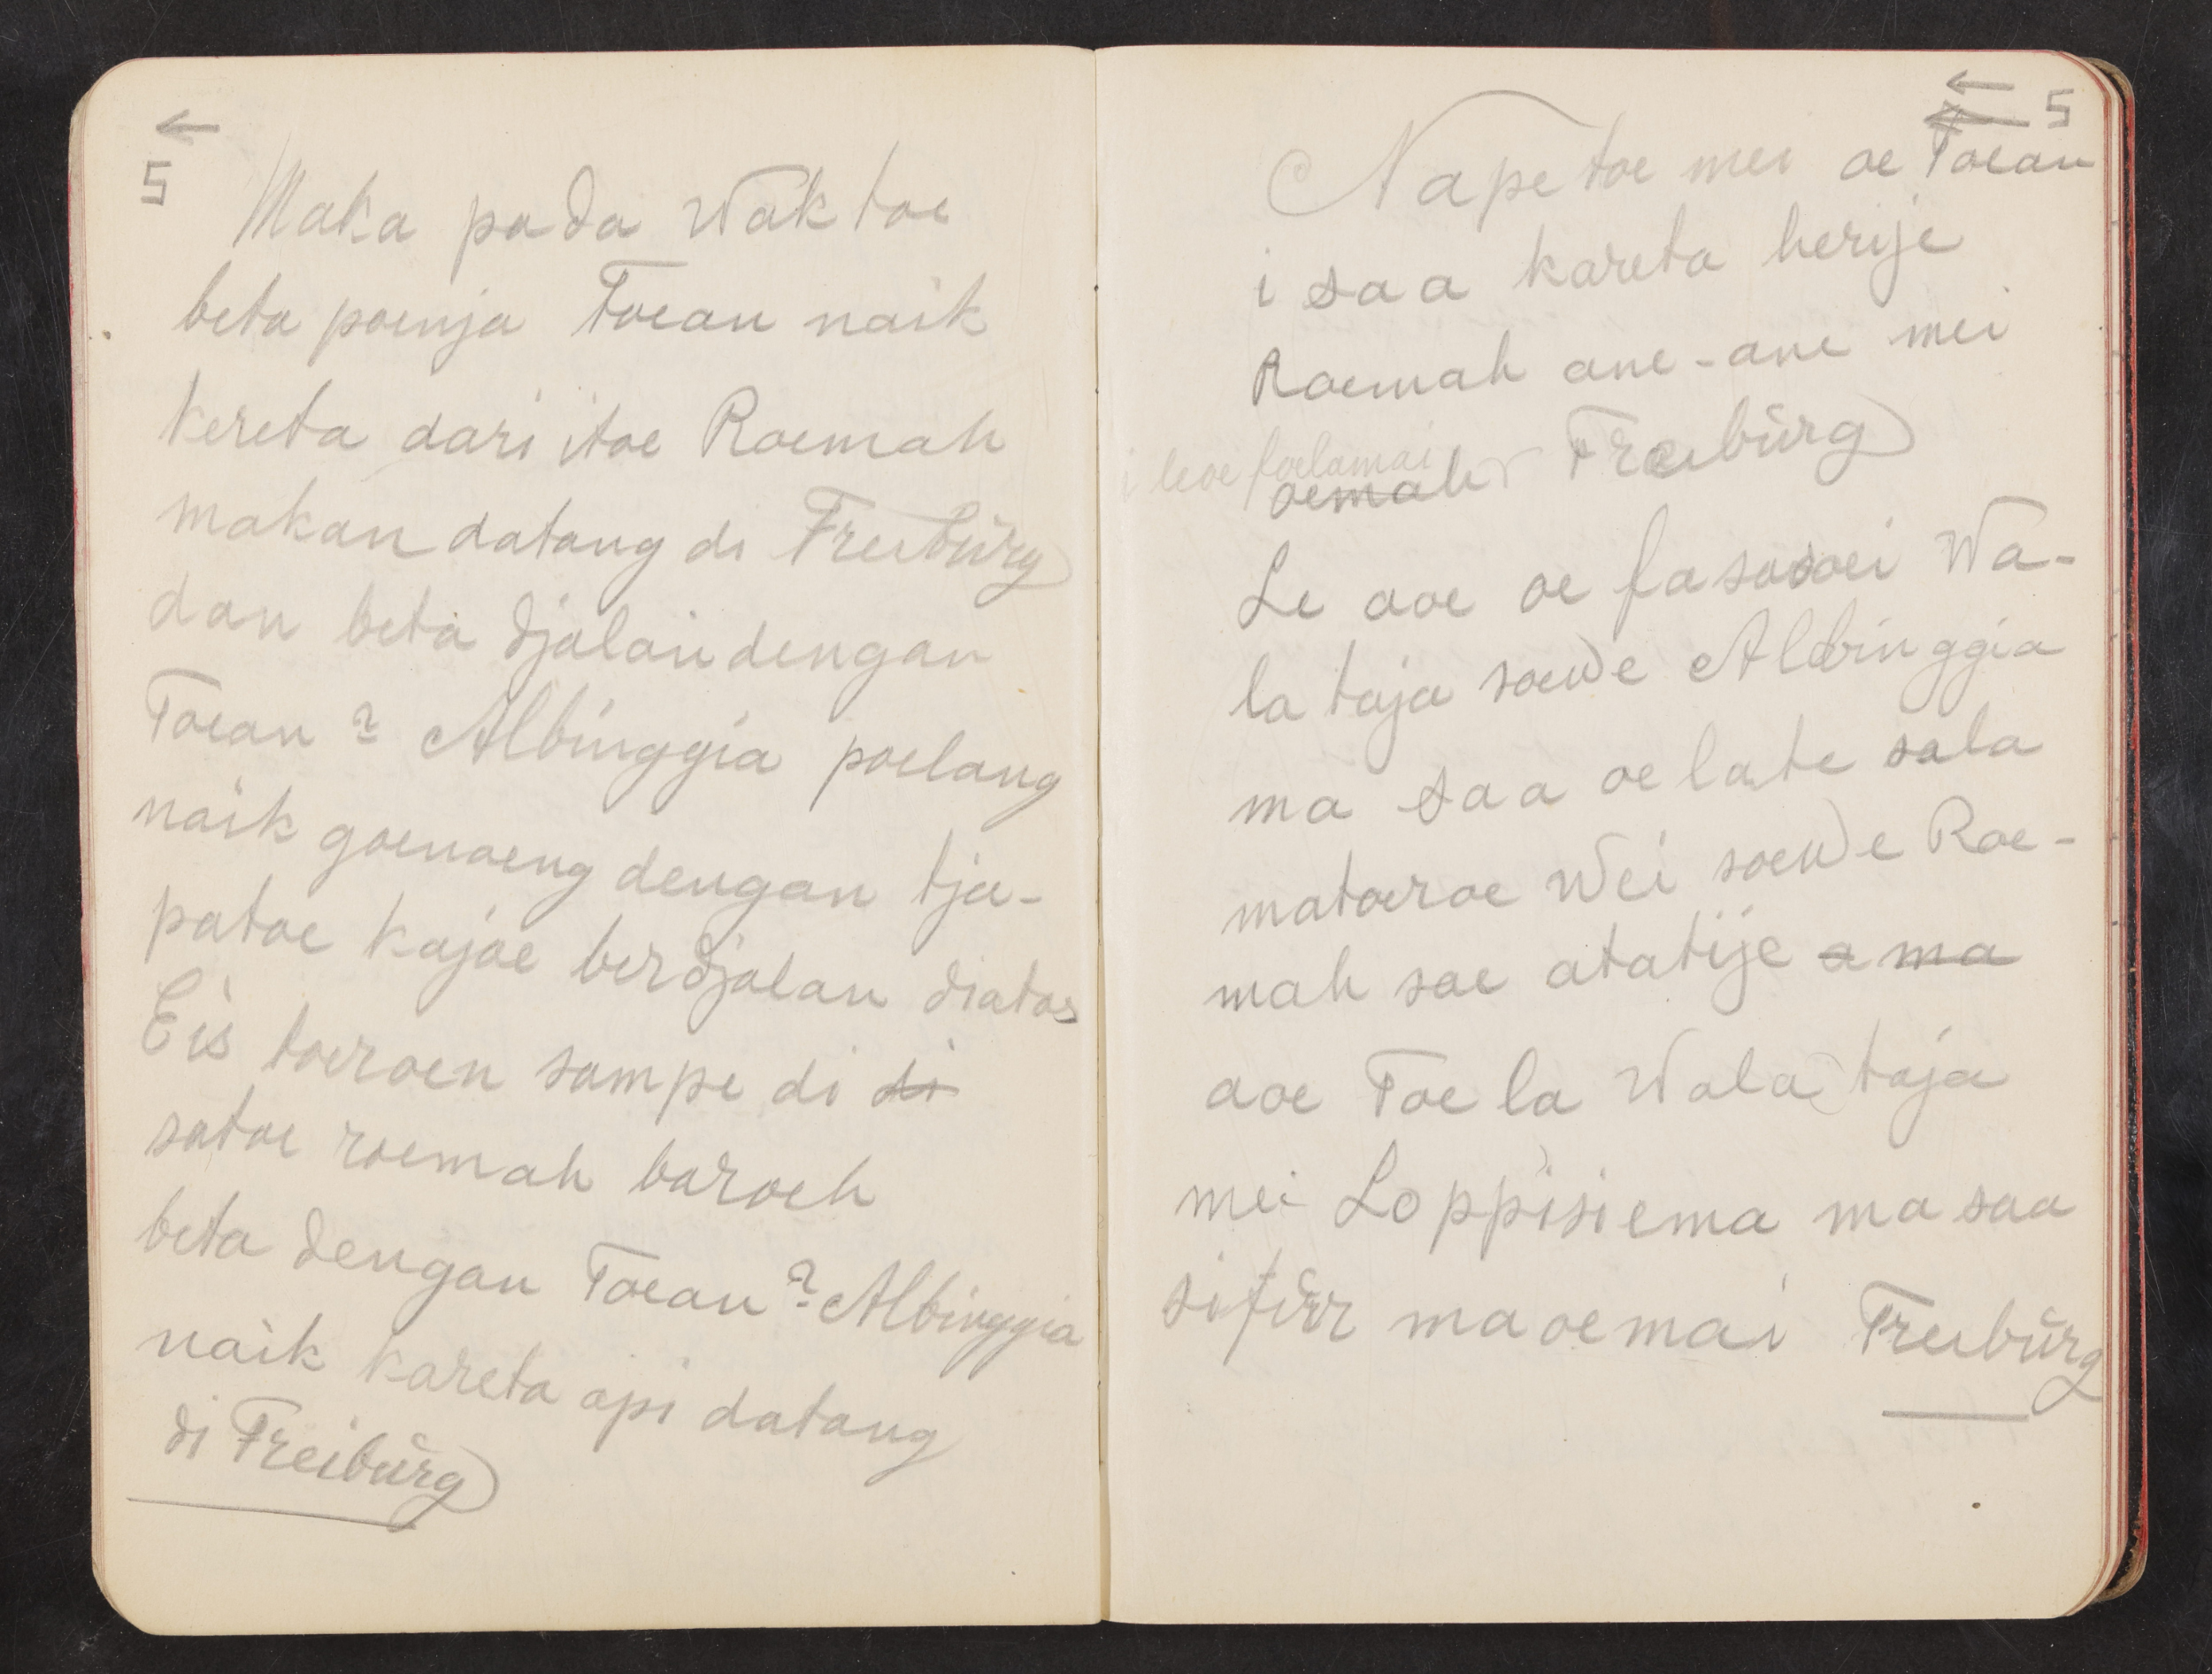 ←
5
Maka pada Waktoe
beta poenja Toean naik
kereta dari itoe Roemah
makan datang di Freibūrg
dan beta djalan dengan
Toean 2 Albinggia poelang
naik goenoeng dengan tja-
patoe kajoe berdjalan diatas
Eis toeroen sampe di di
satoe roemah baroeh
beta dengan Toean 2 Albinggia
naik kareta api datang
di Freibūrg
← 5
Nape toe mei oe Toean
i saa kareta herije
Roemah ane-ane mei
i leoe foelamai
oemah Freibūrg
Le aoe oe fasawei Wa-
la taja soewe Albinggia
ma saa oe late sala
matoeroe Wei soewe Roe-
mah sae atatije a ma
aoe Toe la Wala taja
mei Loppisiema ma saa
ma oemai Freibūrg